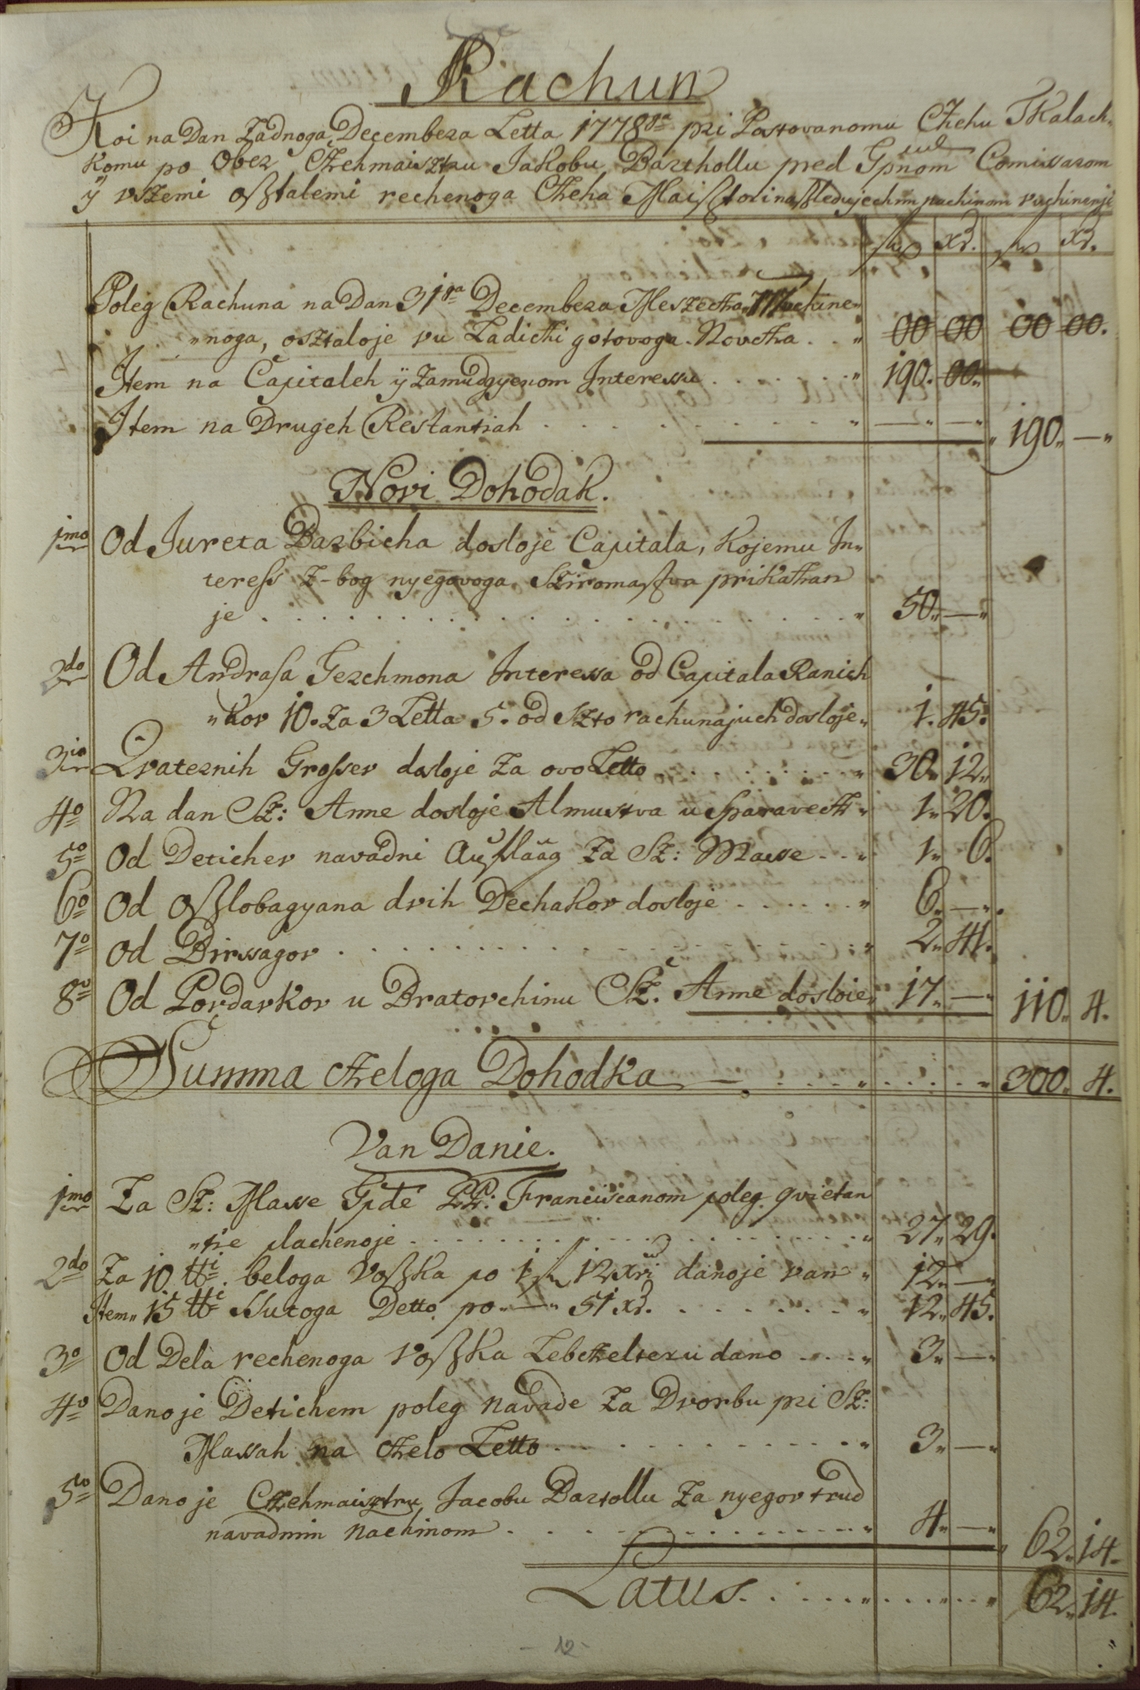 Rachun
Koi na Dan Zadnoga Decembera Letta 1778ga pri Postovanomu Czehu Tkalach-
komu po Ober Czehmaisztru Jakobu Barthollu pred Gpnom Comissarom
ÿ vszemi oßtalemi rechenoga Czeha Maistori naszledujechim nachinom vuchinenji
fl xr. fl xr.
Poleg Rachuna na Dan 31ga Decembera Meszecza 777 vchine-
"noga, osztaloje vu Ladichi gotovoga Novcza . . " 00 00 00 00.
Item na Capitaleh ÿ zamudgyenom Interessu . . . . . . . " 190. 00"
Item na Drugeh Restantiah . . . . . . . . . . . . " — " — " 190. — "
Novi Dohodak.
1mo Od Jureta Barbicha dosloje Capitala, kojemu In-
teress z-bog nyegovoga Sziromastva prikazhan
je . . . . . . . . . . . . . . . . . . . . . " 50. — "
2do Od Andrasa Gerchmona Interessa od Capitala Ranich
"kov 10. za 3 Letta 5. od szto rachunajuch dosloje " 1. 45.
3io Qvaternih Grosser dosloje za ovo Letto . . . . . . . . . " 30. 12.
4o Na dan Sz: Anne dosloje Almustva u " 1. 20.
5o Od Deticher navadni Aufflaag za Sz: Masse . . . " 1. 6.
6o Od oßlobagyana dvih Dechakov dosloje . . . . . . " 6. — "
7o Od Birssagov . . . . . . . . . . . . . . . . . " 2. 41.
8o Od Pordarkov u Bratovchinu Sz: Anne dosloie " 17. — " 110. 4.
Summa Czeloga Dohodka — . . . . . . . . . . . 300. 4.
Van Danie.
1mo Za Sz: Masse Gpde PP: Franciscanom poleg qvietan
"tie plachenoje . . . . . . . . . . . . . . . . . . " 27. 29.
2do Za 10 ℔i. beloga Voßka po 1 fl 12 xri danoje van " 12. — "
Item " 15 ℔i xutoga Detto po — " 51 xr. . . . . . . . . " 12. 45.
3o Od Dela rechenoga voßka Lebczelteru dano . . . . " 3. — "
4o Dano je Detichem poleg Navade za Dvorbu pri Sz:
Massah na Czelo Letto . . . . . . . . . . . . . . " 3. — "
5to Dano je Czehmaisztru Jacobu Bartollu za nyegov trud
navadnim nachinom . . . . . . . . . . . . . . . . " 4. — " 62. 14.
Latus . . . . . . . . . . . . . . " 62. 14.
- 12 -